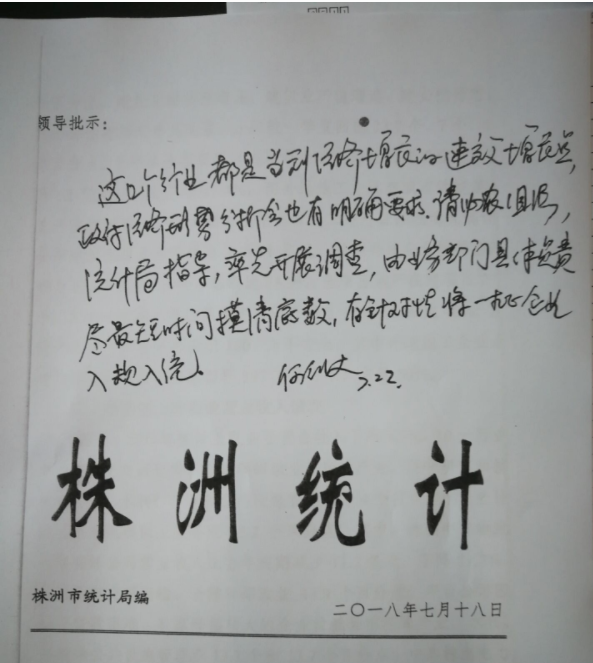 领导批示：
这四个行业都是当前经济增长的建议增长点，
政府经济形势分析会也有明确要求。请
统计局指导，率先开展调查，由业务部门具体负责
尽最短时间摸清底数，将一批企业
入规入统。 7.22.
株洲统计
株洲市统计局编
二〇一八年七月十八日